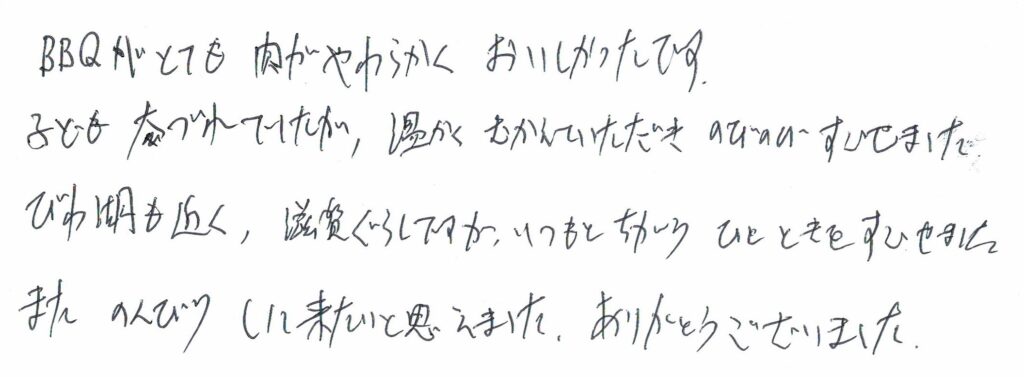 BBQがとても 肉がやわらかく おいしかったです.
子ども づれでしたが, 温かく むかえていただき のびのび すごせました.
びわ湖も近く, 滋賀ぐらしですが, いつもと ちがう ひと ときを すごせました
また のんびり しに 来たいと 思えました. ありがとうございました.